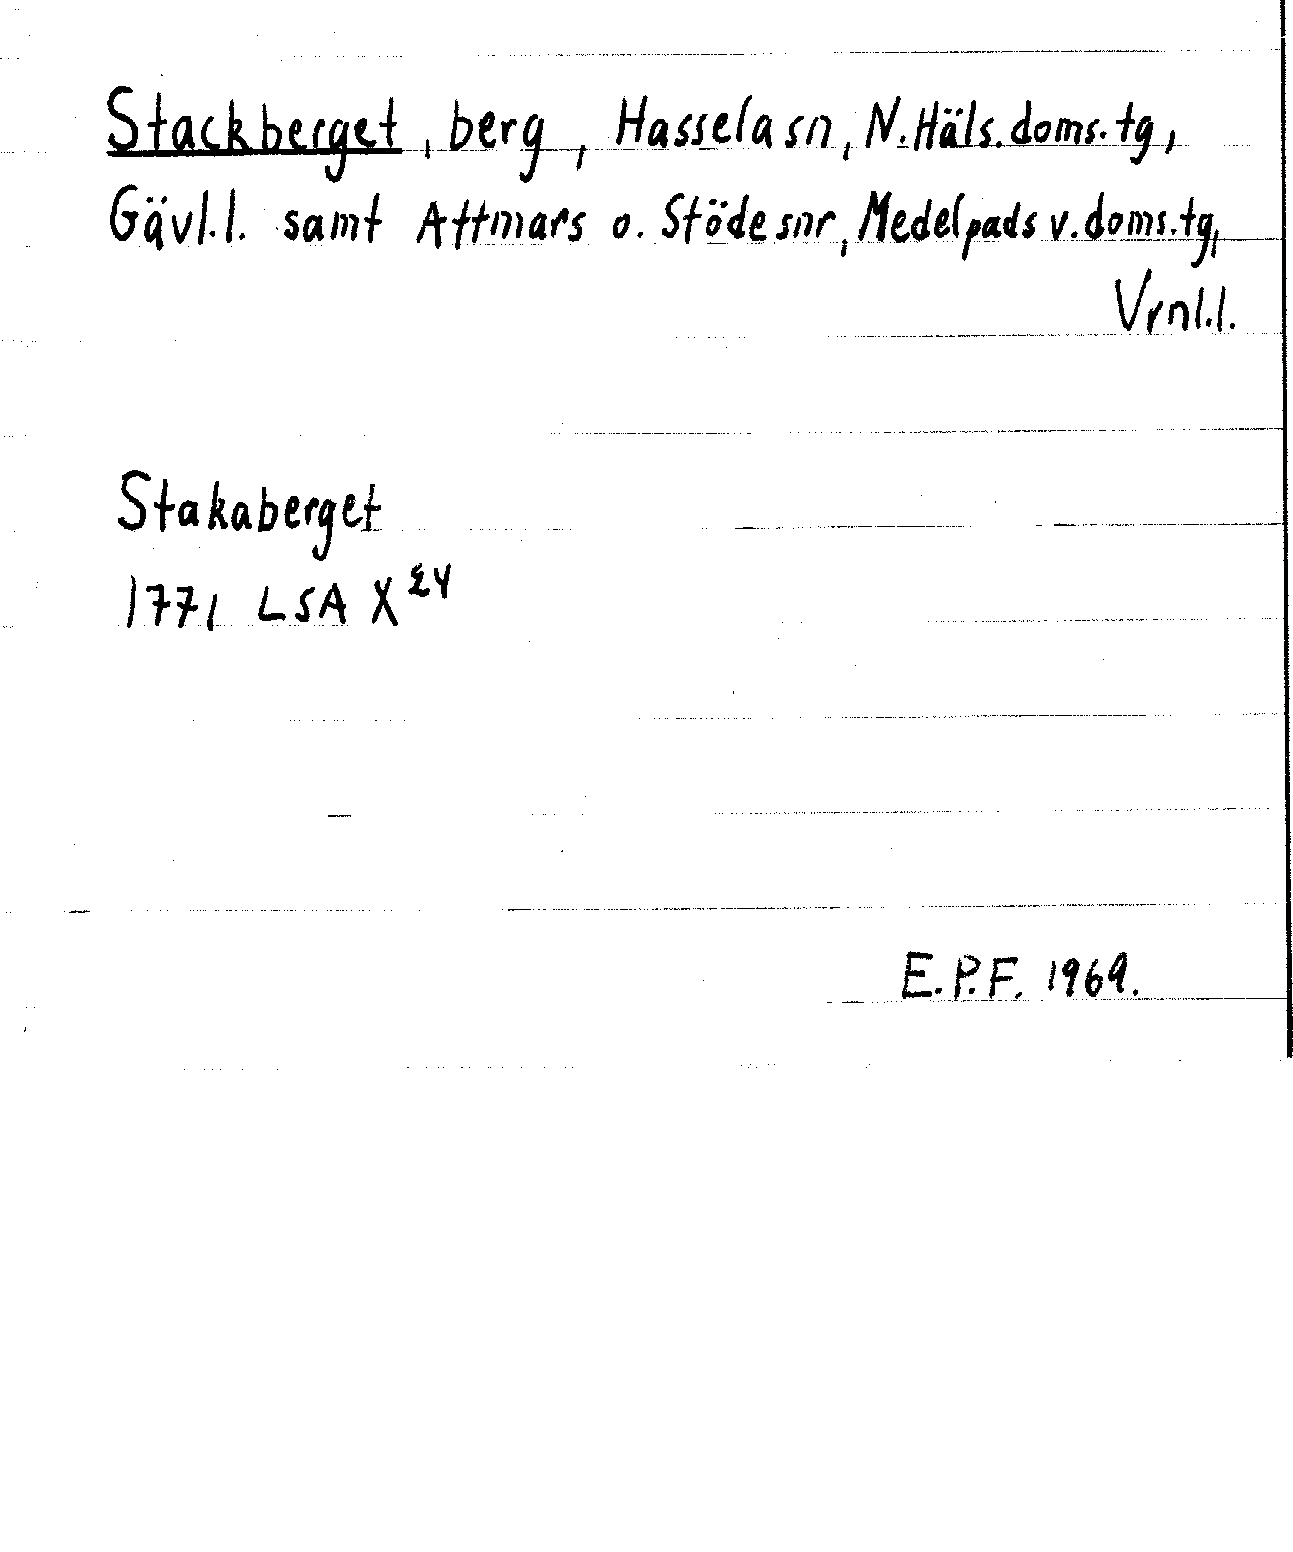 Stackberget, berg, Hassela sn, N. Häls. doms. tg,
Gävl.l. samt Attmars o. Stöde snr, Medelpads v. doms. tg,
Vrnl.l.
Stakaberget
1771 LSA X 24
E.P.F. 1969.